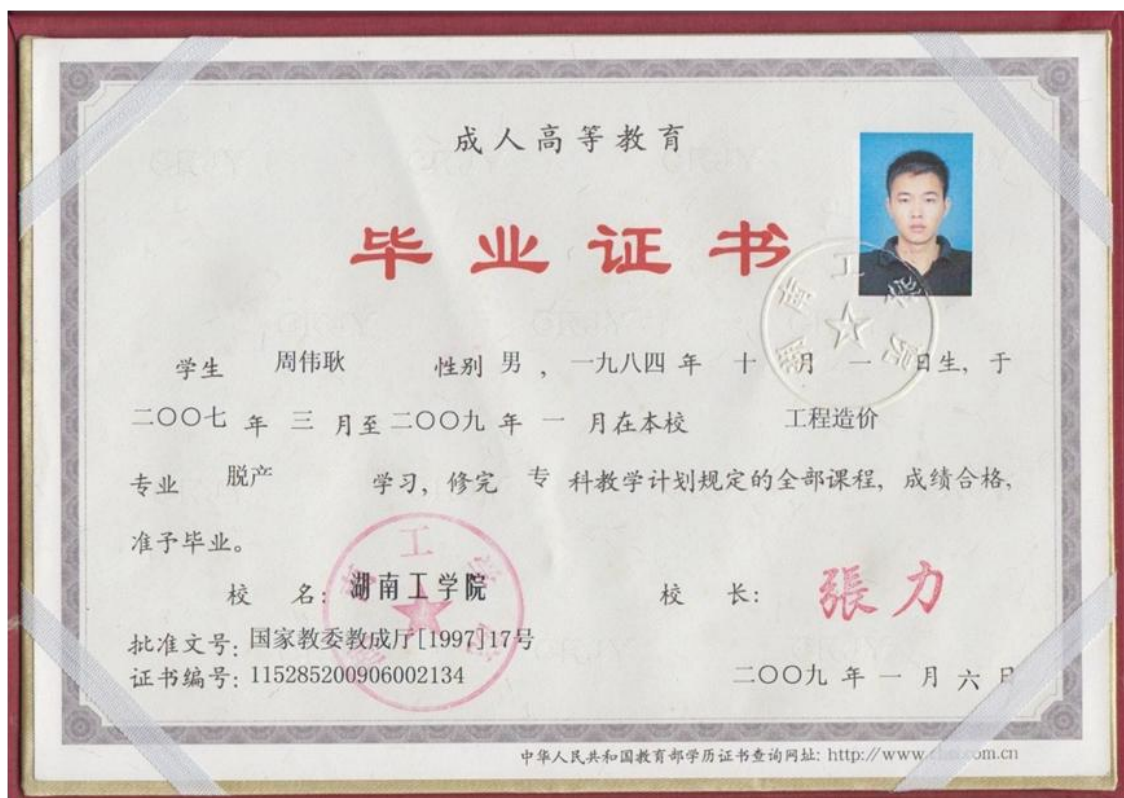 成人高等教育
毕业证书
学生 周伟耿 性别 男 , 一九八四 年 十 月 一 日生, 于
二〇〇七 年 三 月至 二〇〇九 年 一 月在本校 工程造价
专业 脱产 学习, 修完 专 科教学计划规定的全部课程, 成绩合格,
准予毕业。
校 名: 湖南工学院 校 长: 張力
批准文号: 国家教委教成厅[1997]17号
证书编号: 115285200906002134 二〇〇九 年 一 月 六 日
中华人民共和国教育部学历证书查询网址: http://www.
湖南工学院
湖南工学院